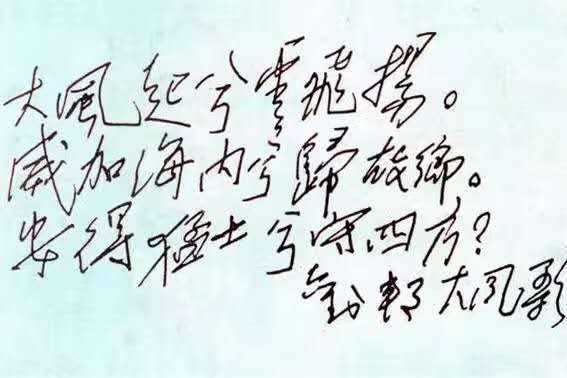 大風起兮雲飛揚。
威加海内兮歸故鄉。
安得猛士兮守四方?
劉邦大风歌